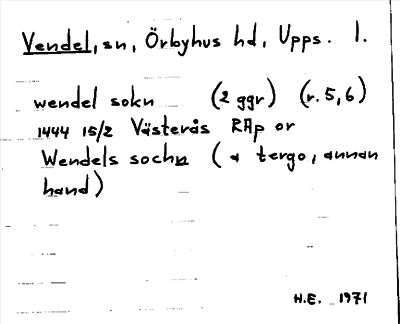 Vendel, sn, Örbyhus hd, Upps. l.
wendel sokn (2 ggr) (r. 5, 6)
1444 15/2 Västerås RAp or
Wendels sochn (a tergo, annan
hand)
H.E. 1971